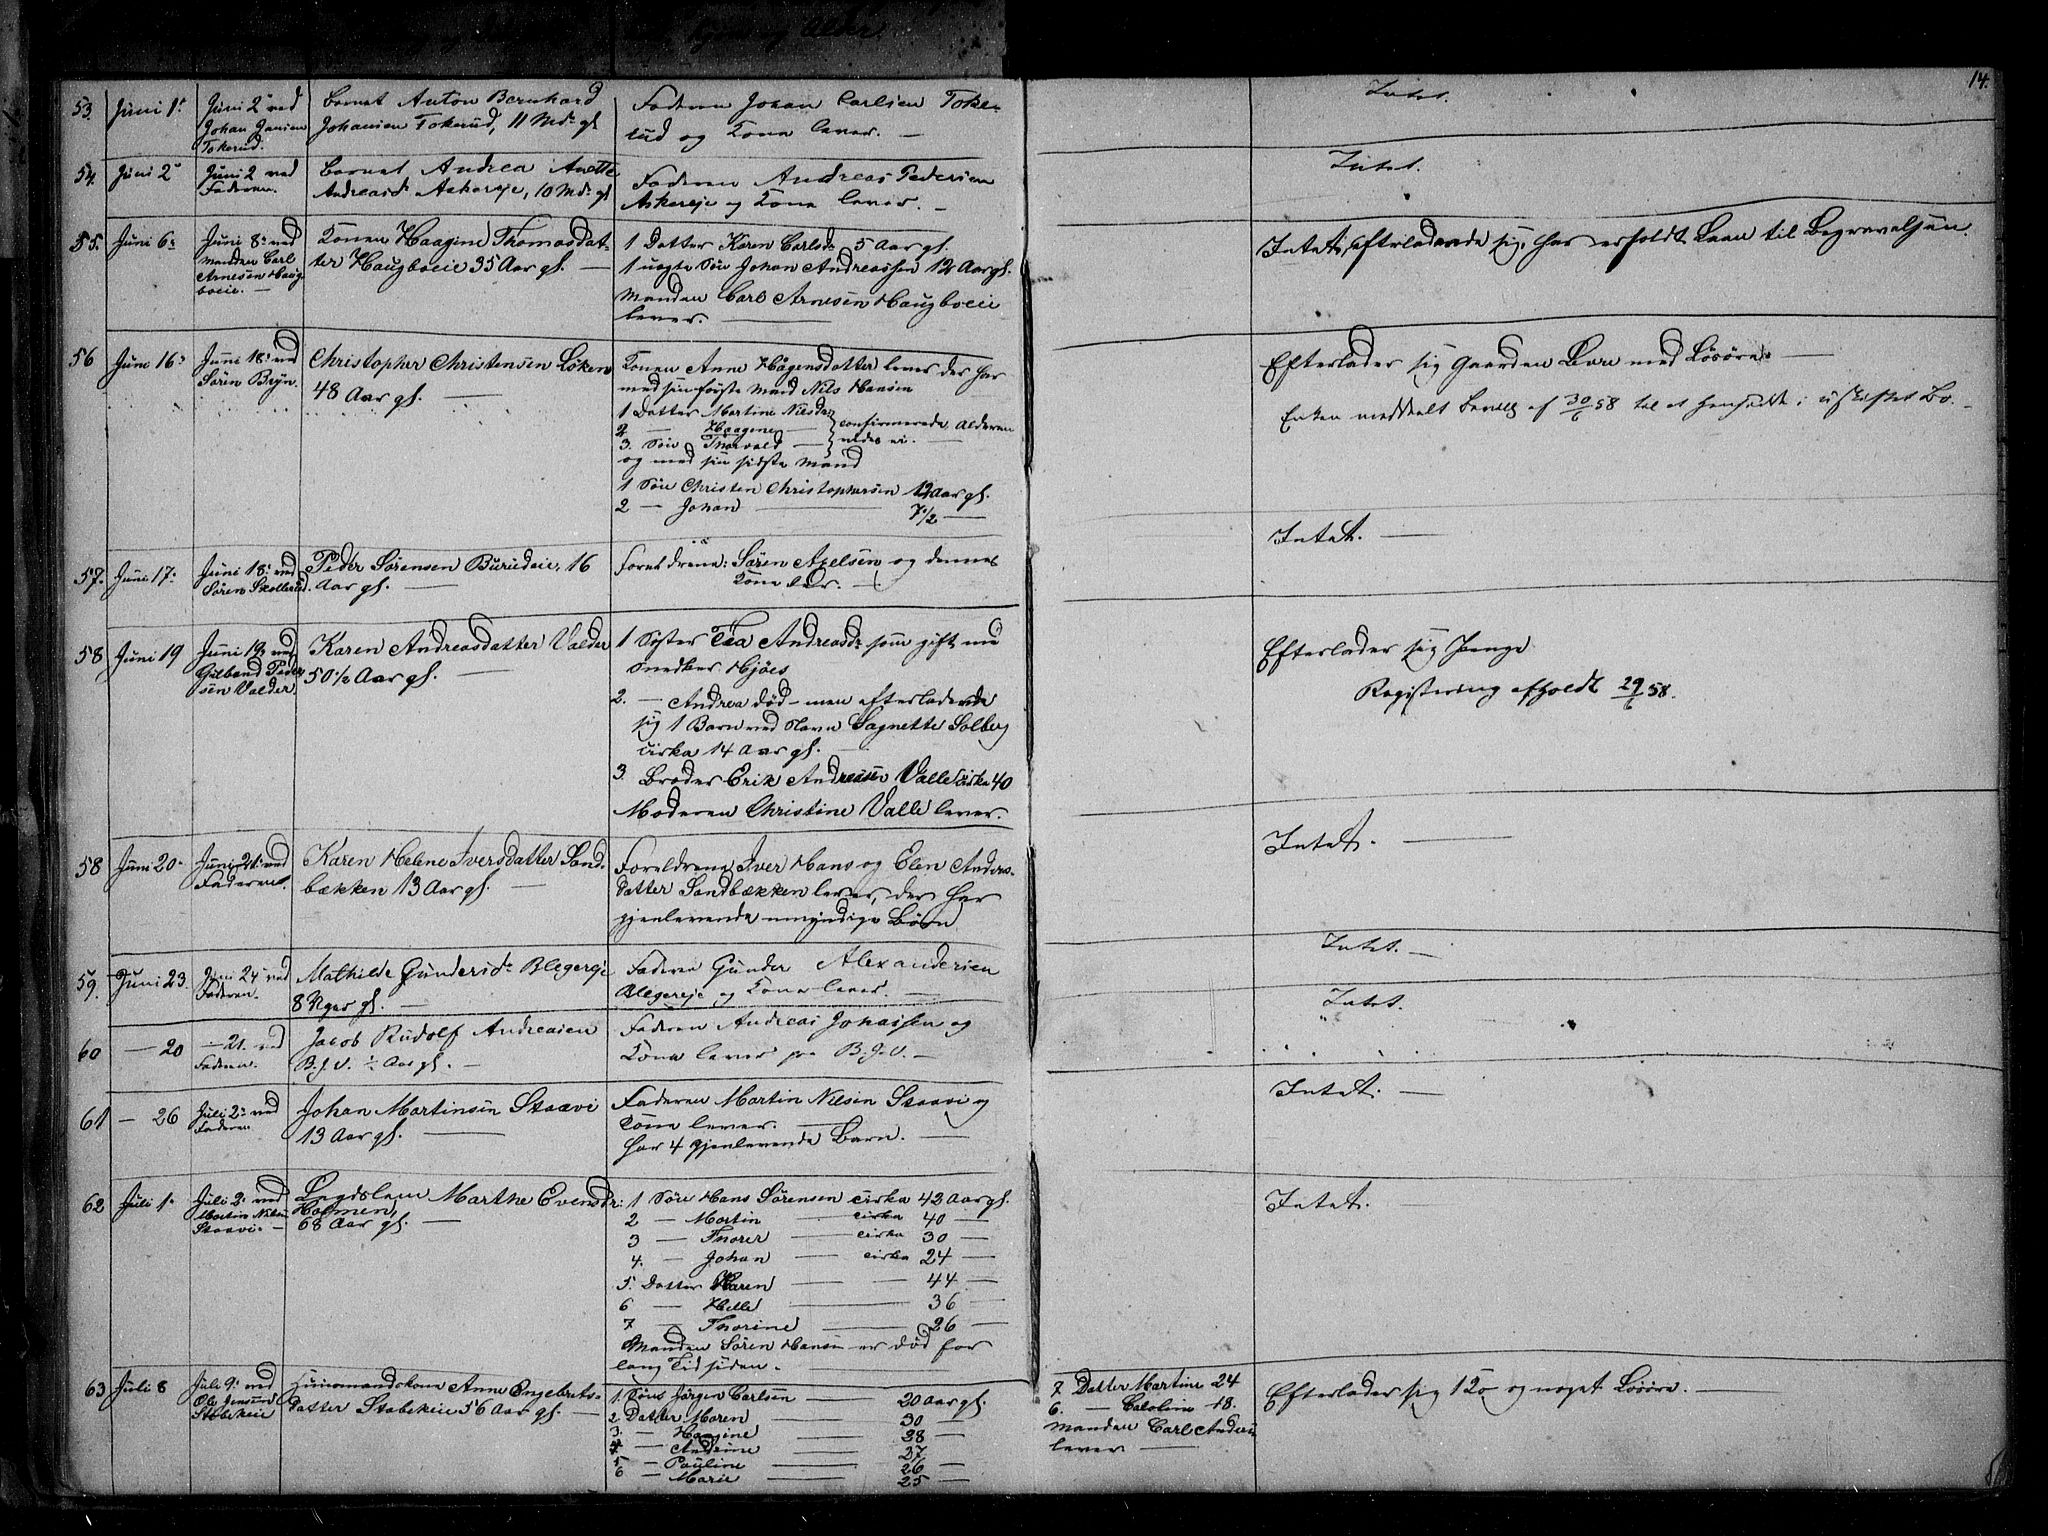 14.
53.
Juni 1ste
Juni 2 ved
Johan Jansen
Tokerud.
Barnet Anton Bernhard
Johansen Tokerud, 11 Mdr gl
Faderen Johan Carlsen Toke-
rud og Kone lever. —
Intet.
54.
Juni 2
Juni 2 ved
Faderen.
Barnet Andrea Anette
Andreasdr Askereje, 10 Mdr gl
Faderen Andreas Pedersen
Askereje og Kone lever. —
Intet.
55.
Juni 6
Juni 8 ved
Manden Carl
Arnesen Haug
boeie. —
Konen Haagine Thomasdat-
ter Haugboeie 35 Aar gl. —
1 Datter Karen Carlsdr 5 Aar gl.
1 uægte Søn Johan Andreassen 12 Aar gl.
Manden Carl Arnesen Haugboeie
lever. —
Intet efterladende sig, har erholdt Laan til Begravelsen.
56
Juni 16
Juni 18 ved
Søren Bryn.
Christopher Christensen Løken
48 Aar gl. —
Konen Anne Hågensdatter lever der har
med sin første Mand Nils Hansen
1 Datter Martine Nilsdr
2 — Haagine —
3. Søn Thorvald —
confirmerede, Alderen
vides ei. —
og med sin sidste Mand
1 Søn Christen Christophersen 12 Aar gl.
2 — Johan — 7 1/2 —
Efterlader sig Gaarden med Løsøre. —
Enken meddelt Bevilg af 30/6 58 til at hensidde i uskiftet Bo. —
57.
Juni 17
Juni 18 ved
Søren Skollerud.
Peder Sørensen Burudeie, 16
Aar gl. —
Foreldrene: Søren Axelsen og dennes
Kone lever. —
Intet. —
58
Juni 19
Juni 19 ved
Gulbrand Peder
sen Valder
Karen Andreasdatter Valder
50 1/2 Aar gl. —
1 Søster Tea Andreasdr som gift med
Snedker Hjøes
2. — Andrea død — men efterladende
sig 1 Barn ved Navn Sagnette Solberg
cirka 14 Aar gl. —
3 Broder Erik Andreasen Valle cirka 40
Moderen Christine Valle lever.
Efterlader sig Penge
Registrering afholdt 29/6 58.
58
Juni 20
Juni 21 ved
Faderen.
Karen Helene Iversdatter Sand-
bækken 13 Aar gl. —
Foreldrene Iver Hans og Elen Anders-
datter Sandbækken lever, der har
gjenlevende umyndige Børn
Intet. —
59.
Juni 23.
Juni 24 ved
Faderen.
Mathilde Gundersdr Blegereje
8 Uger gl. —
Faderen Gunder Alexandersen
Blegereje og Kone lever. —
Intet. —
60
— 20
— 21. ved
Faderen.
Jacob Rudolf Andreasen
B.J.V. 1/2 Aar gl. —
Faderen Andreas Johassen og
Kone lever paa B.J.V. —
Intet.
61
— 26
Juli 2 ved
Faderen
Johan Martinsen Staavi
13 Aar gl. —
Faderen Martin Nilsen Staavi og
Kone lever. —
har 4 gjenlevende Barn. —
Intet. —
62
Juli 1
Juli 2 ved
Martin Nilsen
Staavi. —
Legdslem Marthe Evensdr
Holmen,
68 Aar gl. —
1 Søn Hans Sørensen cirka 42 Aar gl.
2 — Martin — cirka 40 —
3 — Thorer — cirka 30 —
4. — Johan — cirka 24 —
5. Datter Karen — — 44 —
6 — Helle — 36 —
7 — Thorine — 26 —
Manden Søren Hansen er død for
lang Tid siden. —
Intet. —
63
Juli 8
Juli 9 ved
Ole Jensen
Stabekeie
Huusmandskone Anne Engebrets-
datter Stabekeie 56 Aar gl. —
1. Søn Jørgen Carlsen 20 Aar gl.
2. Datter Maren — 30 —
3. — Hagine — 28 —
4 — Andrine — 27
5 — Pauline — 26 —
6 — Marie — 25 —
7 Datter Martine 24
6. — Caroline 18.
Manden Carl Andersen
lever —
Efterlader sig 120 og noget Løsøre. —